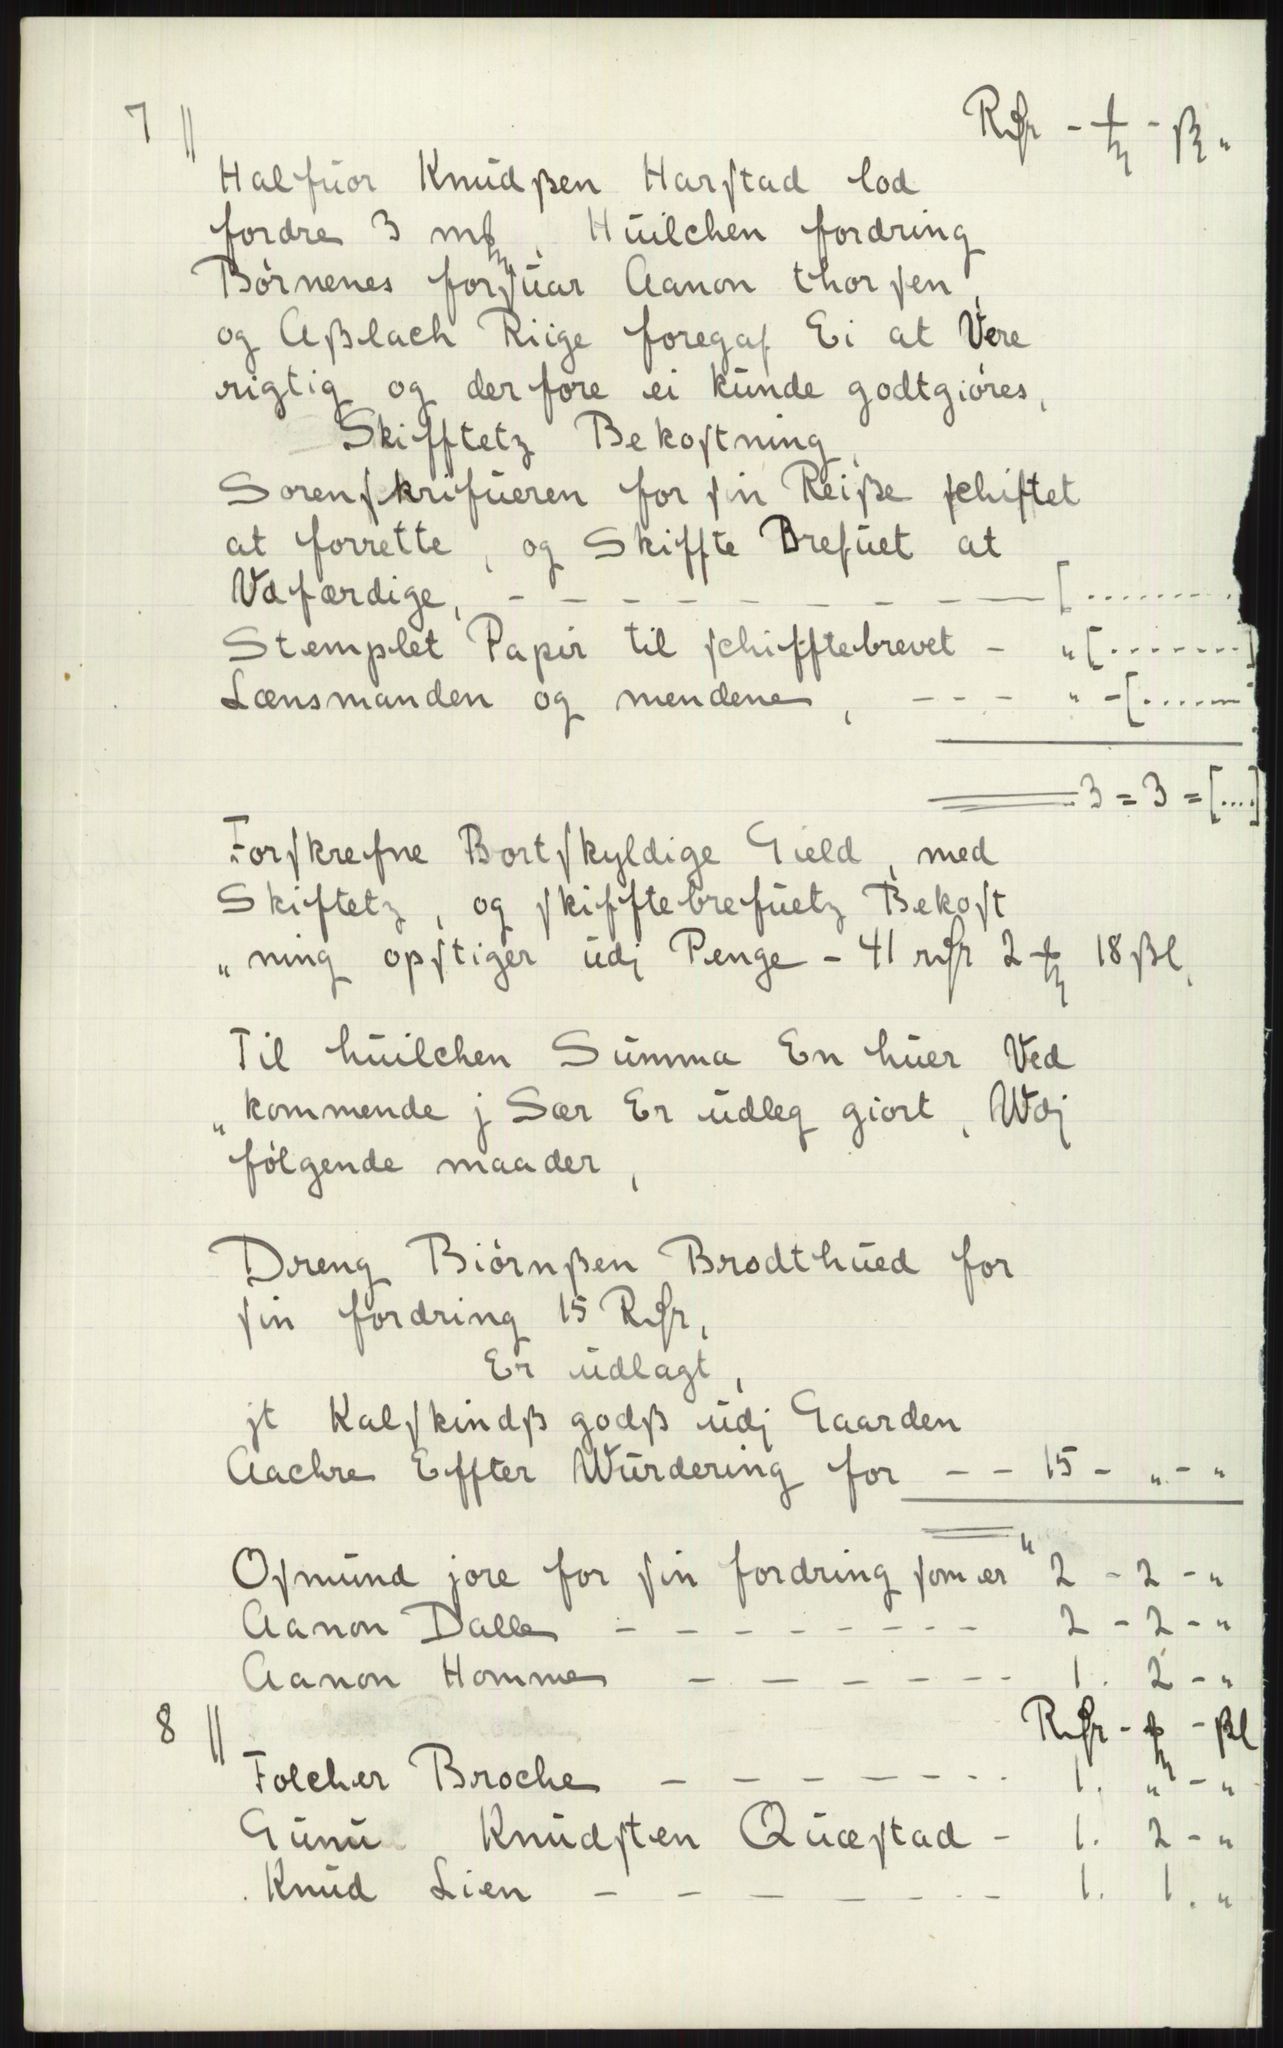 7 || Rdr - ꝑ - ß "
Halfuor Knudßen Harſtad lod
fordre 3 mꝑ, Huilchen fordring
Børnenes forſuar Aanon thorſen,
og Aßlach Riige foregaf Ei at Vere
rigtig og derfore ei kunde godtgiøres,
Skifftetz Bekoſtning,
Sorenſkrifueren for ſin Reiße ſchiftet
at forrette, og Skiffte Brefuet at
Vdfærdige, - - - - - - - - - [.........
Stemplet Papir til ſchifftebrevet - " [.......]
Lænsmanden og mendene, - - - " - [......
3 = 3 = [....]
Forſkrefne Bortſkyldige Gield, med
Skiftetz, og ſkifftebrefuetz Bekoſt
" ning opſtiger udj Penge - 41 rdr 2 ꝑ 18 ßl,
Til huilchen Summa En huer Ved
" kommende j Sær Er udleg giort, Wdj
følgende maader,
Dreng Biørnßen Brodthued for
ſin fordring 15 Rdr,
Er udlagt,
jt Kalſkindß godß udj Gaarden
Aachre Effter Wurdering for - - 15 - " - "
Oſmund jore for ſin fordring ſom er " 2 - 2 - "
Aanon Dalle - - - - - - - - 2 - 2 - "
Aanon Homme - - - - - - 1. 2 - "
8 || Rdr - ꝑ - ßl
Folcher Broche - - - - - - - 1. " - "
Gunu Knudſten Quæſtad - 1. 2 - "
Knud Lien - - - - - - - - 1. 1. "